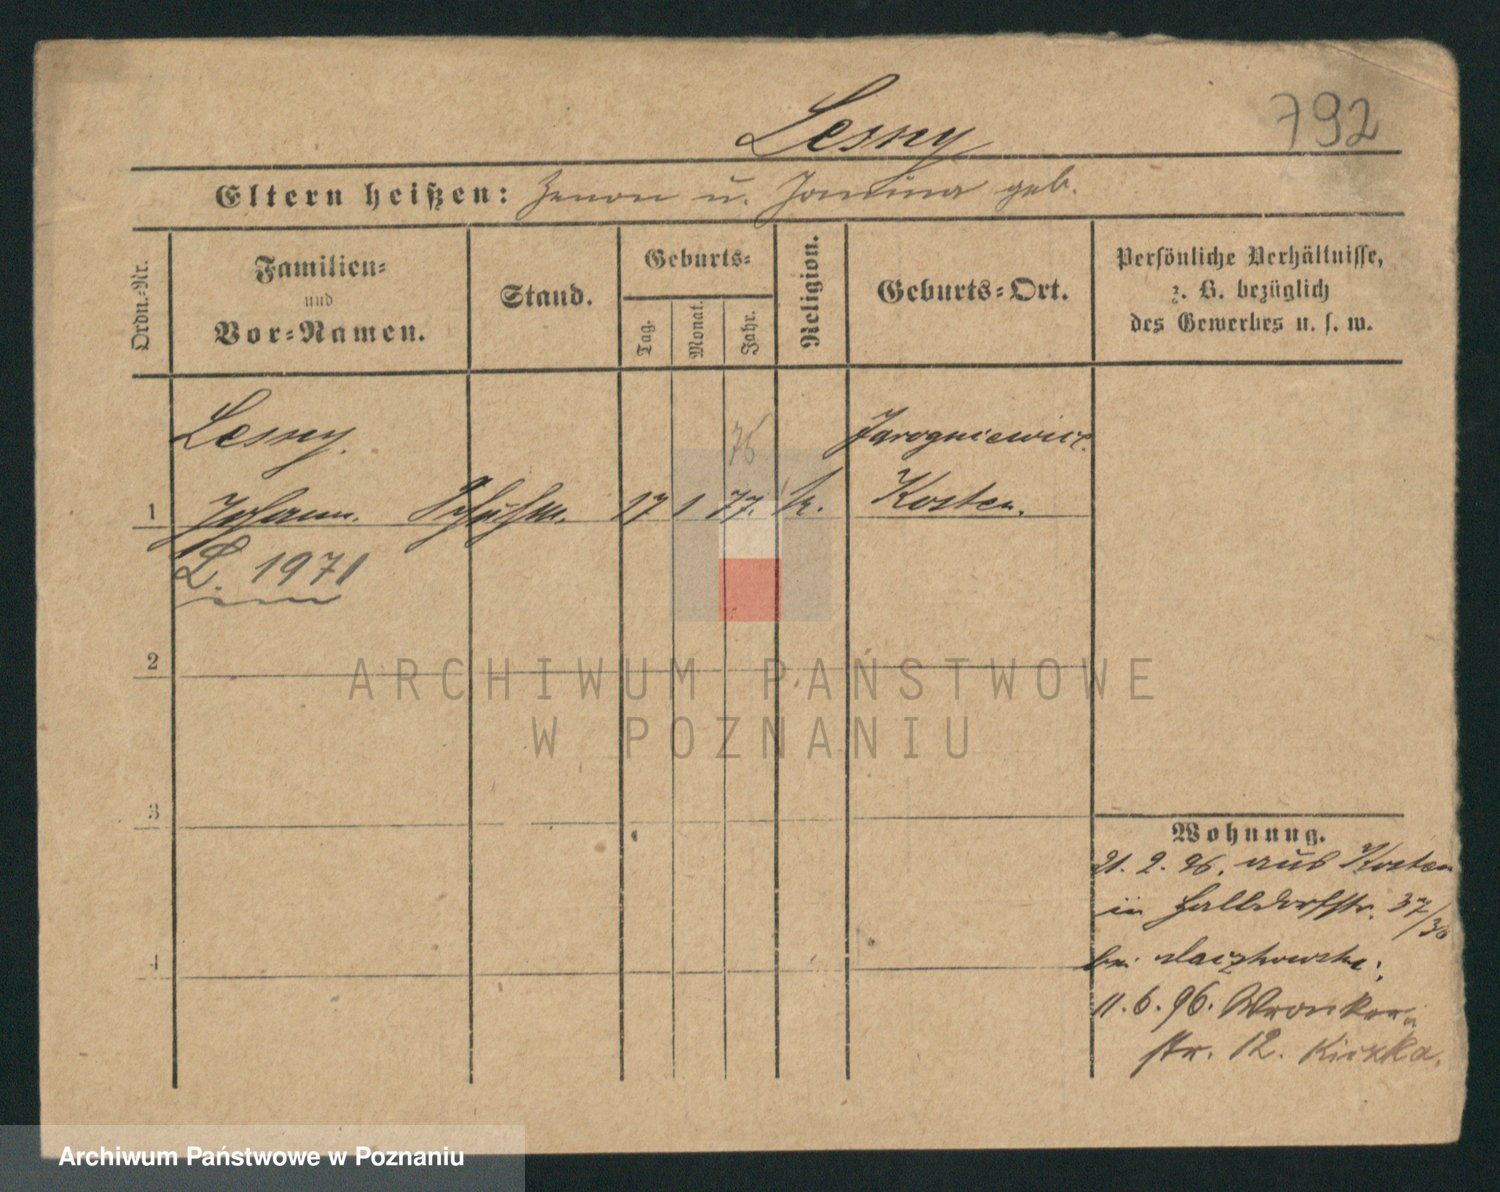 Lesny
792
Eltern heißen: Zenon u. Janina geb.
Ordn.-Nr.
Familien- und Vor-Namen.
Stand.
Geburts-
Tag.
Monat.
Jahr.
Religion.
Geburts-Ort.
Persönliche Verhältnisse,
z. B. bezüglich
des Gewerbes u. s. w.
Lesny.
75
Jarogniewice
1 Johann. Schuhm. 17 1 77. k. Kosten.
L. 1971
2
3
4
Wohnung.
21. 2. 96. aus Kosten
in Halldorfstr. 37/38
bei
11. 6. 96. Wronker
str. 12.
ARCHIWUM PAŃSTWOWE
W POZNANIU
Archiwum Państwowe w Poznaniu